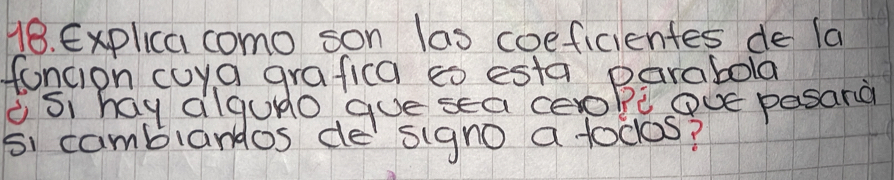 18. Explica como son las coeficientes de la
función cuya grafica es esta parabola
¿ Si hay alguno que sea cero? ¿ Que pasaria
si cambiandos de signo a todos?